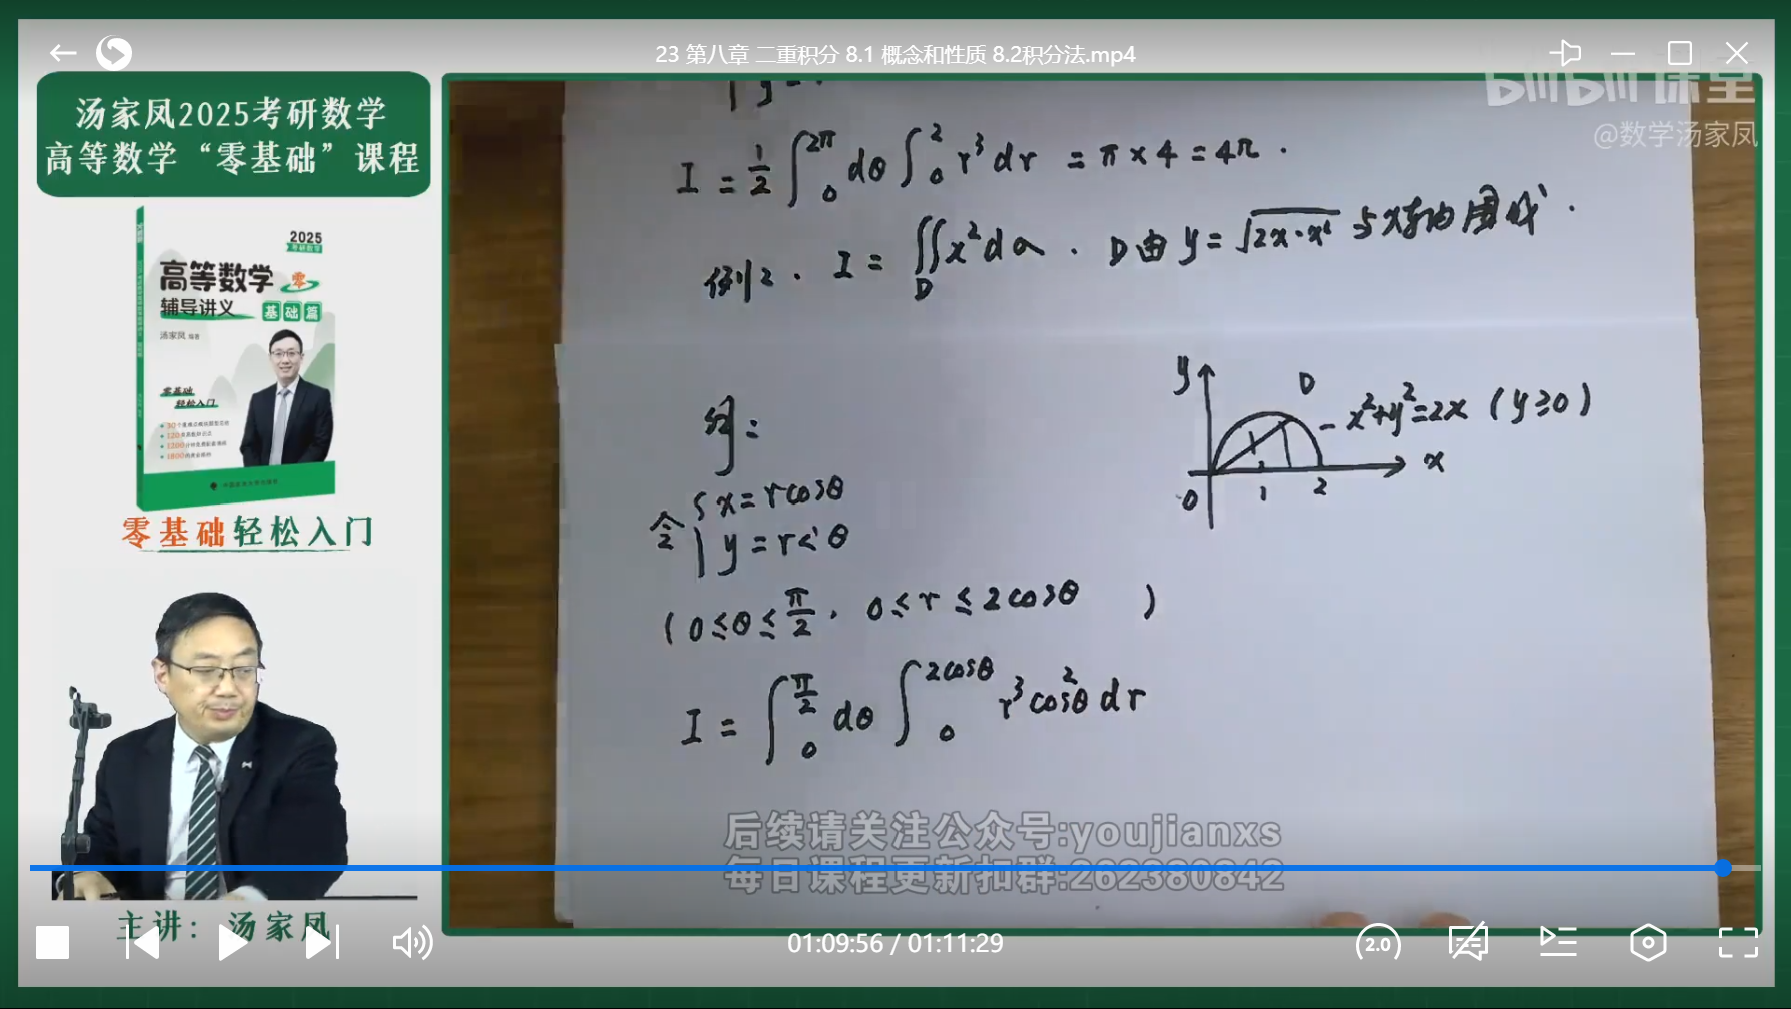 23 第八章 二重积分 8.1 概念和性质 8.2积分法.mp4
汤家凤2025考研数学
高等数学“零基础”课程
2025
高等数学 零
辅导讲义 基础篇
汤家凤 编著
零基础
轻松入门
零基础轻松入门
主讲：汤家凤
bilibili 课堂
@数学汤家凤
I = 1/2 ∫₀^{2π} dθ ∫₀^2 r³ dr = π × 4 = 4π .
例2. I = ∬_D x² dσ . D由 y = √(2x-x²) 与x轴围成 .
y
D
x²+y²=2x (y≥0)
x
0 1 2
解:
令 { x = rcosθ
y = r θ
( 0 ≤ θ ≤ π/2 , 0 ≤ r ≤ 2cosθ )
I = ∫₀^{π/2} dθ ∫₀^{2cosθ} r³ cos²θ dr
后续请关注公众号:youjianxs
每日课程更新扣群:262380842
01:09:56 / 01:11:29
2.0